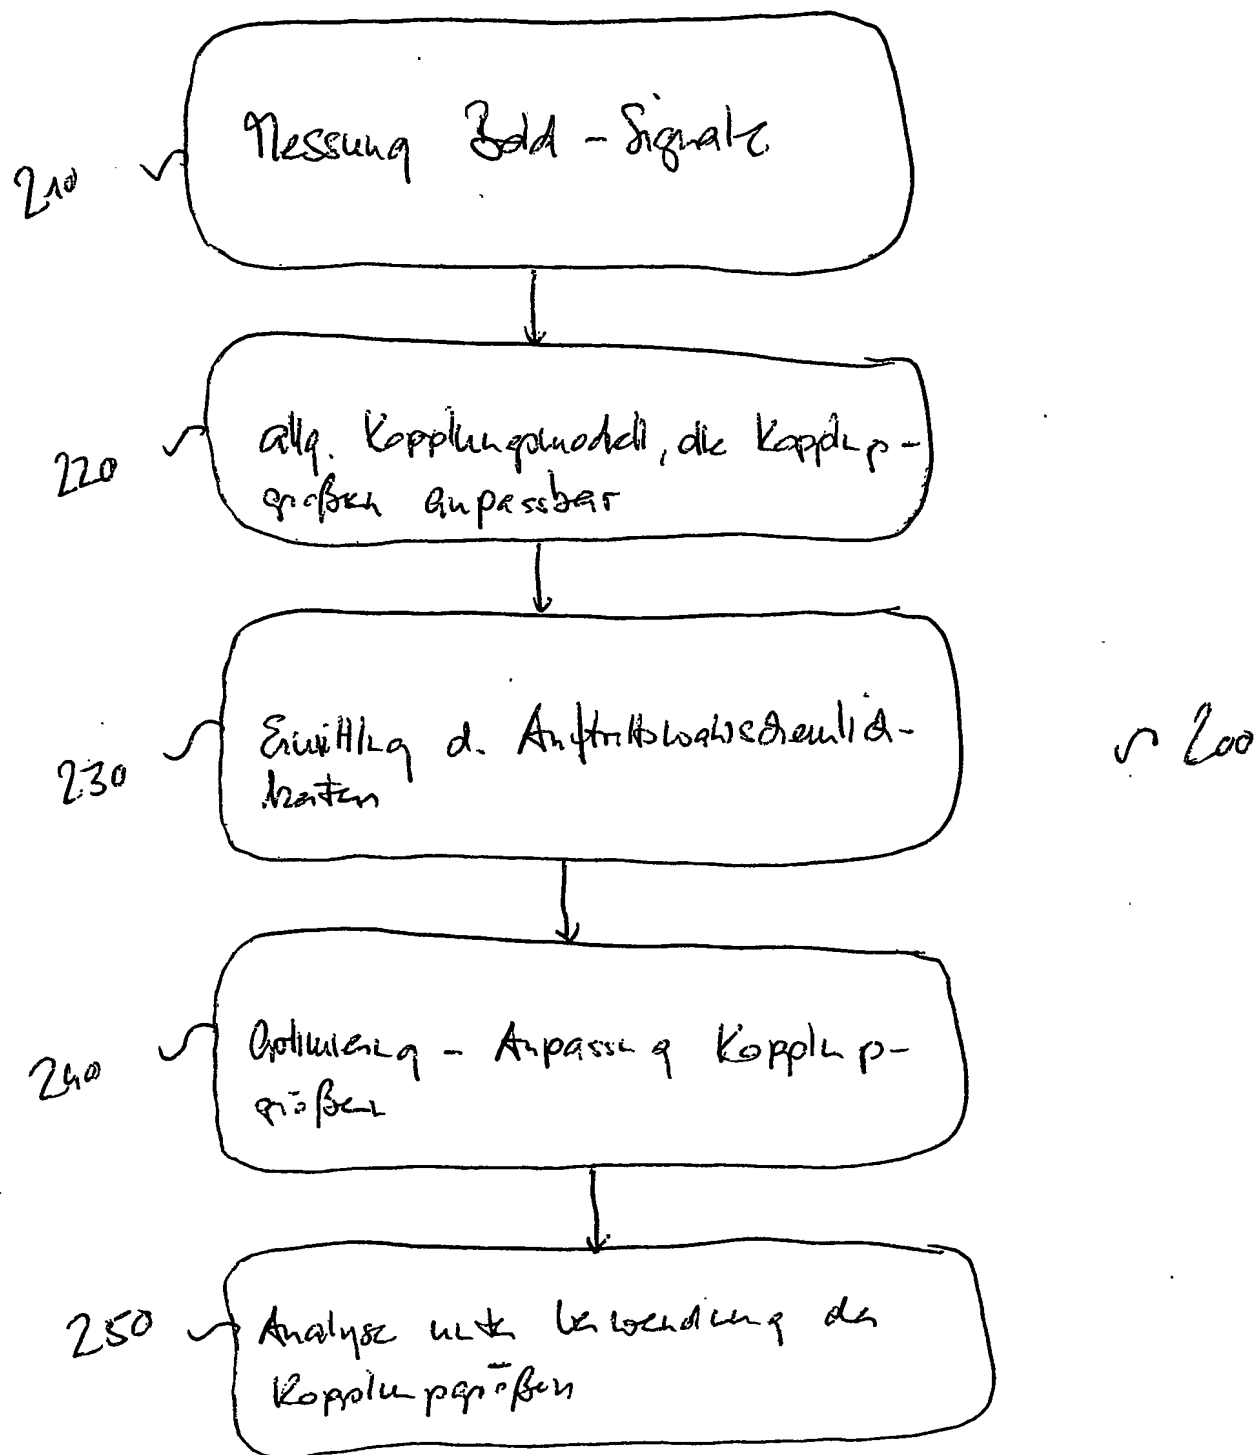 210
Messung Bold - Signale
220
allg. Kopplungsmodell, die Kopplungs-
größen anpassbar
230
Ermittlung d. Auftrittswahrscheinlich-
keiten
200
240
Optimierung - Anpassung Kopplungs-
größen
250
Analyse unter Verwendung der
Kopplungsgrößen